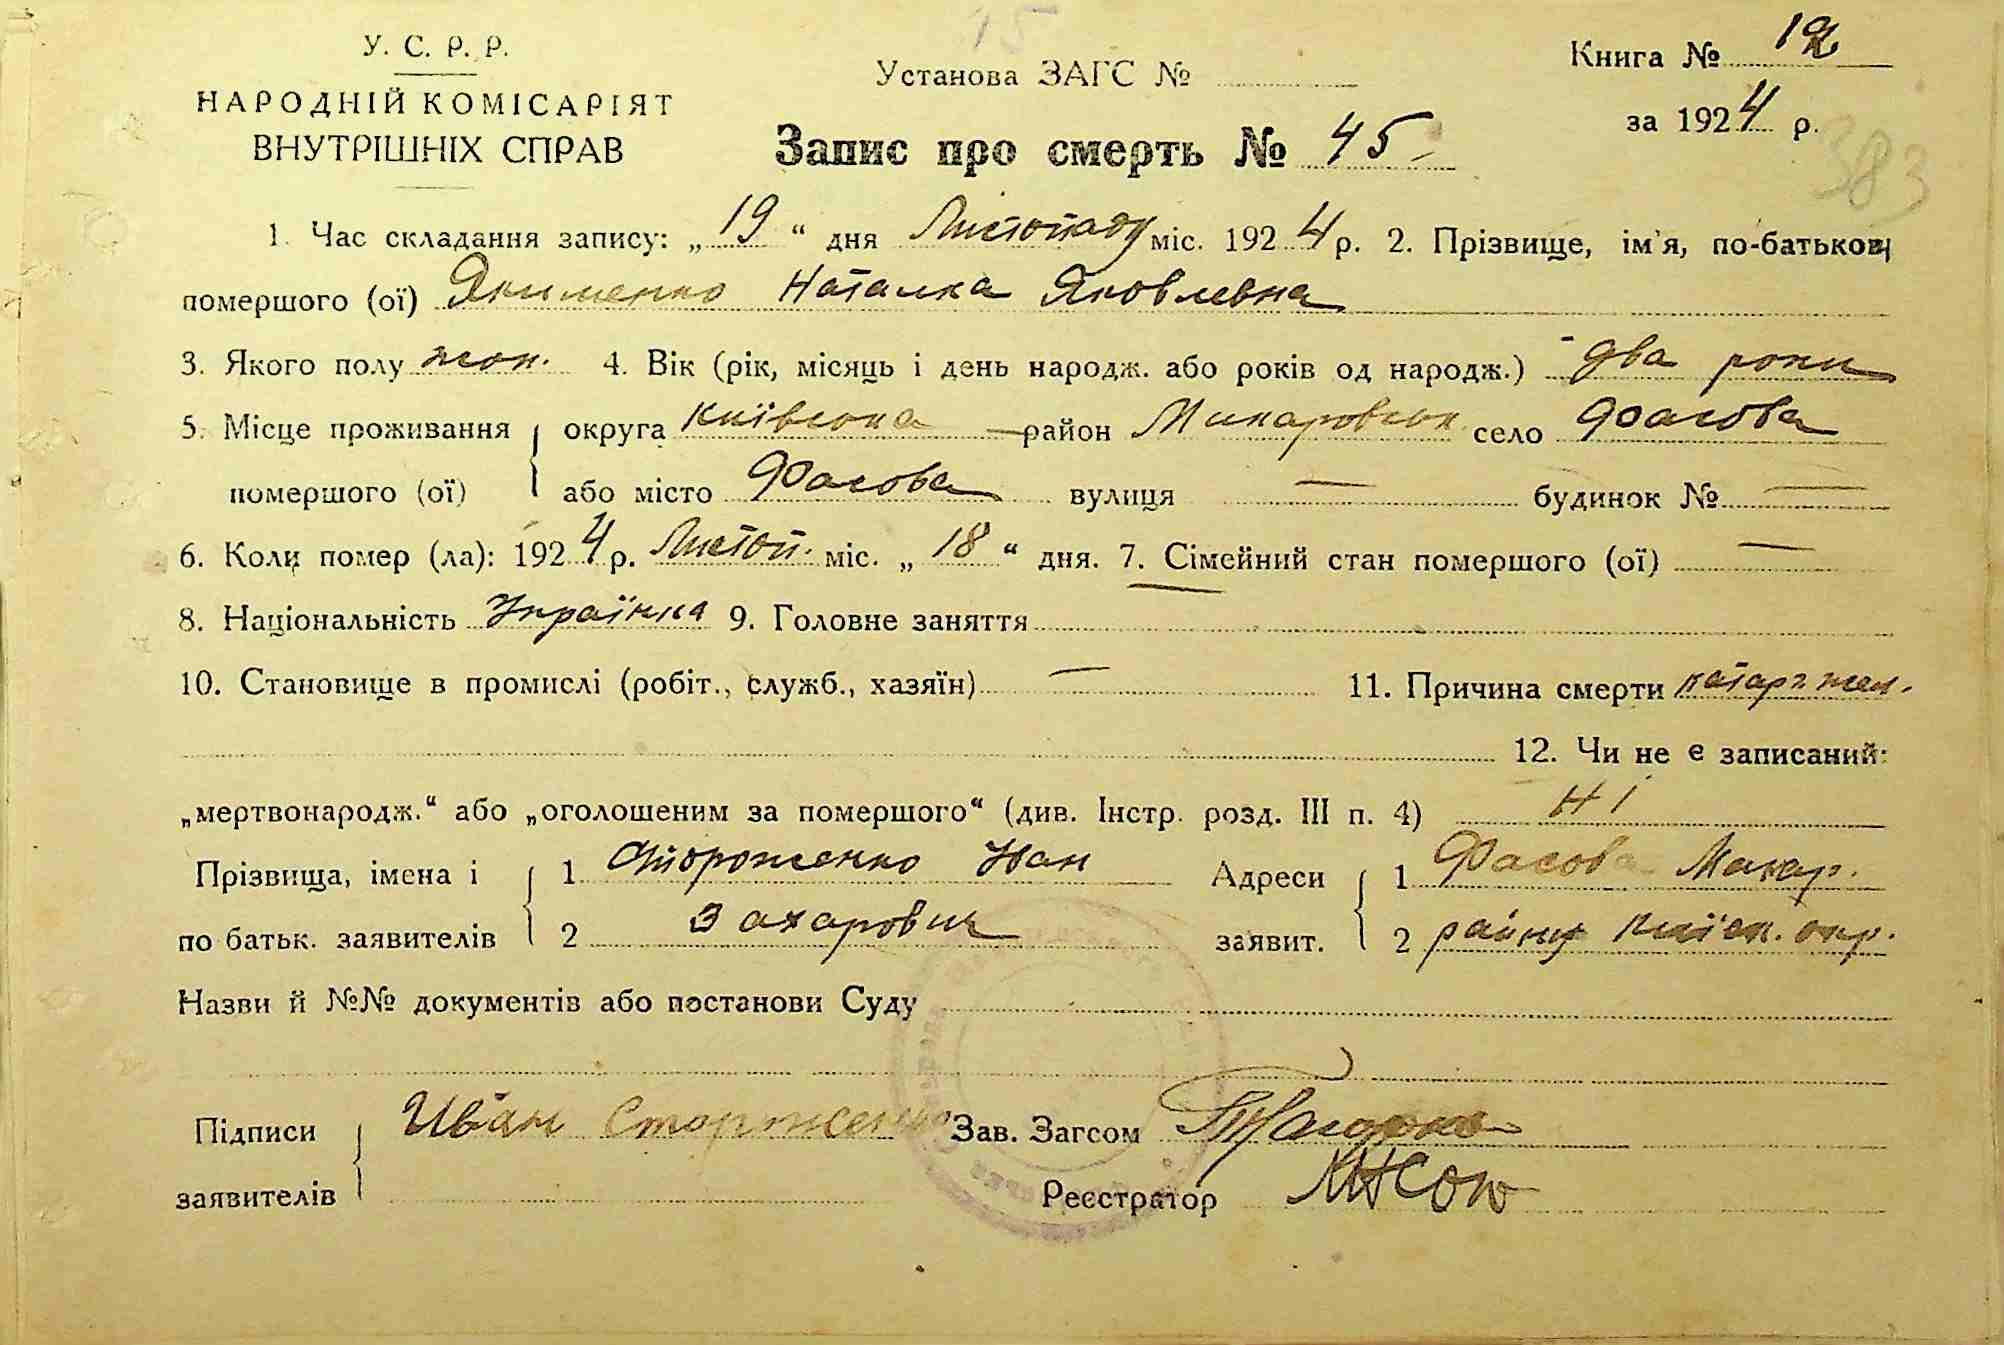 У. С. Р. Р.
НАРОДНІЙ КОМІСАРІЯТ
ВНУТРІШНІХ СПРАВ
15
Установа ЗАГС №
Книга № 12
за 1924 р.
383
Запис про смерть № 45
1. Час складання запису: „19“ дня Листопаду міс. 1924 р. 2. Прізвище, ім'я, по-батькові
помершого (ої) Якименко Наталка Яковлевна
3. Якого полу жон. 4. Вік (рік, місяць і день народж. або років од народж.) два роки
5. Місце проживання округа Київська район Макаровськ село Фасова
помершого (ої) або місто Фасова вулиця — будинок № —
6. Коли помер (ла): 1924 р. Листоп. міс. „18“ дня. 7. Сімейний стан помершого (ої) —
8. Національність Українка 9. Головне заняття
10. Становище в промислі (робіт., служб., хазяїн) — 11. Причина смерти катарр жел.
12. Чи не є записаний:
„мертвонародж.“ або „оголошеним за помершого“ (див. Інстр. розд. III п. 4) Ні
Прізвища, імена і 1 Стороженко Иван Адреси 1 Фасова Макар.
по батьк. заявителів 2 Захарович заявит. 2 району Київск. окр.
Назви й №№ документів або постанови Суду
Підписи Иван Сторженко Зав. Загсом
заявителів Реєстратор